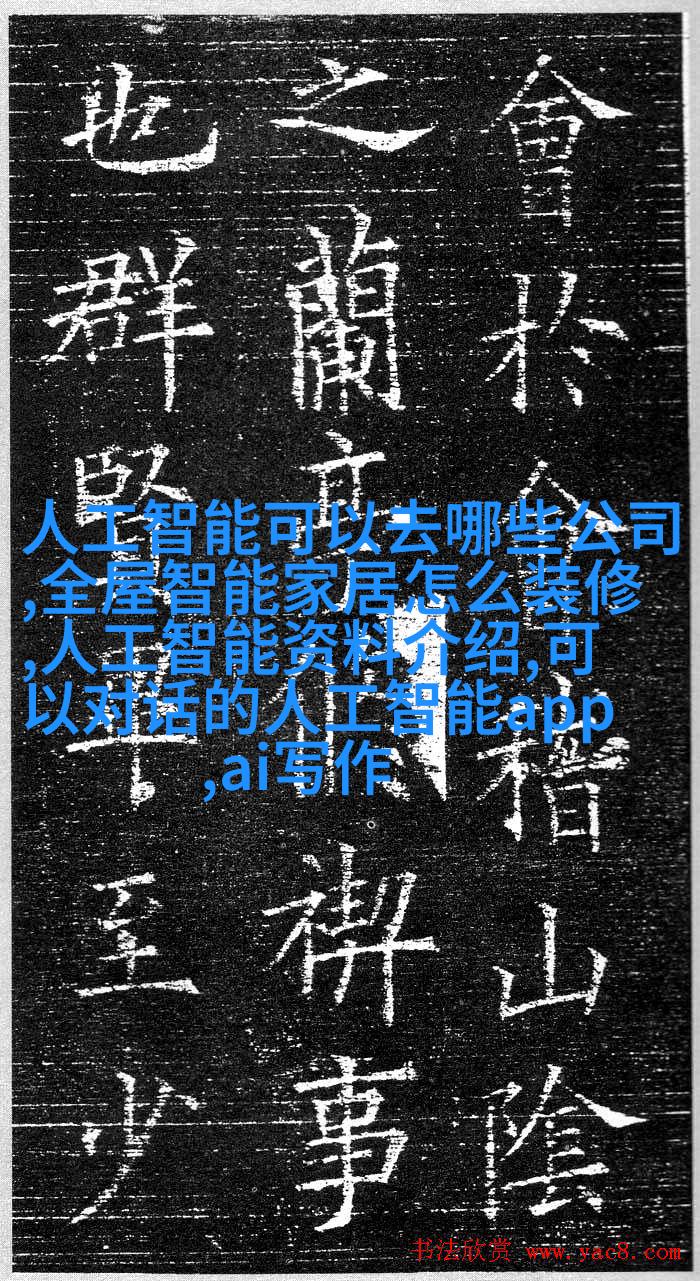 會於會稽山陰
之蘭亭禊事
也群賢畢至少
人工智能可以去哪些公司
,全屋智能家居怎么装修
,人工智能资料介绍,可
以对话的人工智能app
,ai写作
书法欣赏 www.yac8.com